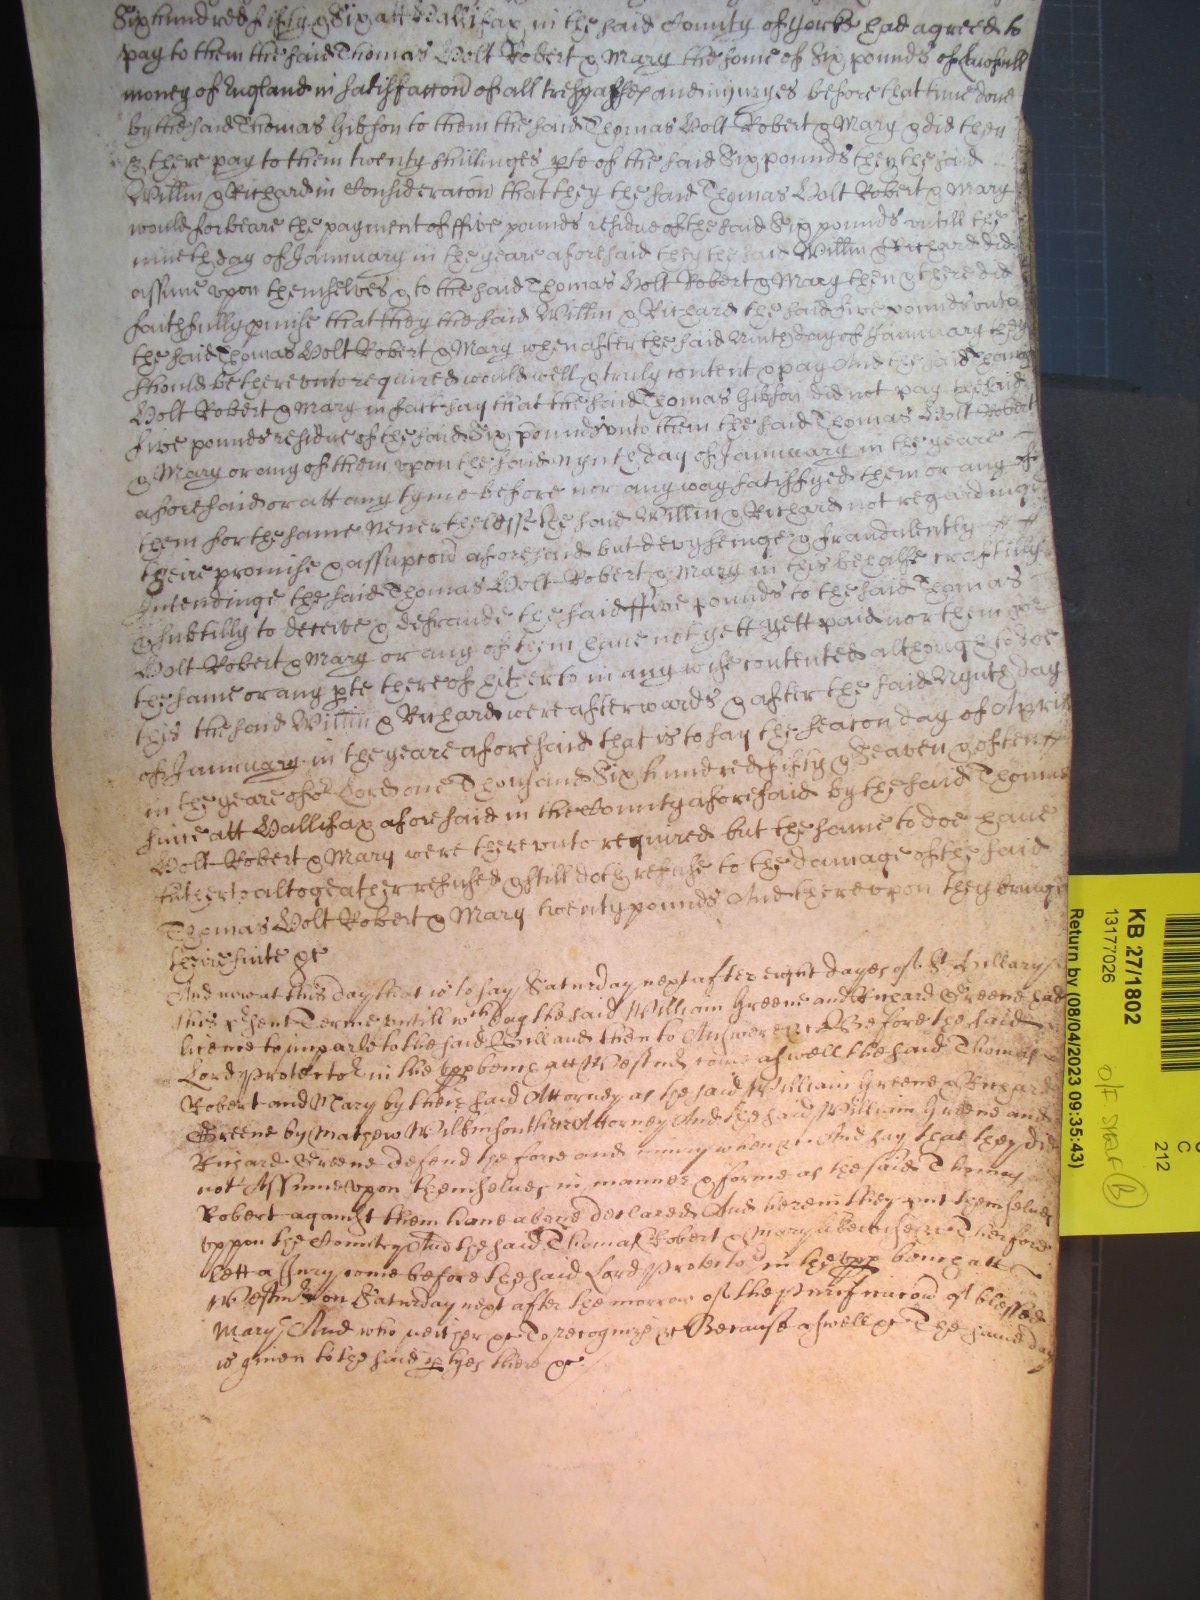 Six hundred fifty & Six att Hallifax in the said County of Yorke had agreed to
pay to them the said Thomas Holt Robert & Mary the some of Six pounds of Lawfull
money of England in satisfaccon of all trespasses and iniuryes before that time done
by the said Thomas Gibson to them the said Thomas Holt Robert & Mary & did then
& there pay to them twenty shillinges pte of the said Six pounds they the said
Willm & Richard in Consideracon that they the said Thomas Holt Robert & Mary
would forbeare the payment of ffive pounds residue of the said Six pounds vntill the
nineth day of Januuary in the yeare aforesaid they the said Willm & Richard did
assume vpon themselves & to the said Thomas Holt Robert & Mary then & there did
faithfully pmise that they the said Willm & Richard the said five pounds vnto
the said Thomas Holt Robert & Mary when after the said Ninth day of Januuary they
should be therevnto required would well & truly content & pay And the said Thomas
Holt Robert & Mary in fact say that the said Thomas Gibson did not pay the said
five pounds residue of the said Six pounds vnto them the said Thomas Holt Robert
& Mary or any of them vpon the said nynth day of Januuary in the yeare
aforesaid or att any tyme before nor any way satisfyed them or any of
them for the same Neuerthelesse the said Willm & Richard not regardinge
theire promise & assupcon aforesaid but devyseinge & fraudulently
Intendinge the said Thomas Holt Robert & Mary in this behalfe craftily
& subtilly to deceive & defraude the said ffive pounds to the said Thomas
Holt Robert & Mary or any of them haue not yett yett paid nor them for
the same or any pte thereof hitherto in any wise contented although to doe
this the said Willm & Richard were afterwards & after the said Nynth day
of Januuary in the yeare aforesaid that is to say the seacon day of Aprill
in the yeare of or Lord one Thousand Six hundred fifty & Seaven & often
since att Hallifax aforesaid in the County aforesaid by the said Thomas
Holt Robert & Mary were therevnto required but the same to doe haue
hitherto altogeather refused & still doth refuse to the damage of the said
Thomas Holt Robert & Mary twenty pounds And therevpon they bringe
theire suite &c
And now at this day that is to say Saturday next after eight dayes of St Hillary
this psent Terme vntill wch day the said William Greene and Richard Greene had
licence to imparle to the said Bill and then to Answere &c Before the said
Lord Protector in the vpp bench att Westmr come aswell the said Thomas
Robert and Mary by their said Attorney as the said William Greene & Richard
Greene by Mathew Wilkinson their Attorney And the said William Greene and
Richard Greene defend the force and iniury when &c And say that they did
not Assume vpon themselues in manner & forme as the said Thomas
Robert against them haue aboue declared And herein they put themselues
vppon the Country And the said Thomas Robert & Mary likewise &c Therfore
lett a Jury come before the said Lord Protector in the vpp bench att
Westmr on Saturday next after the morrow of the Purificacon of blessed
Mary And who neither &c To recognize &c Because aswell &c The same day
is giuen to the said ptyes there &c
KB 27/1802
13177026
Return by (08/04/2023 09:35:43)
212
C